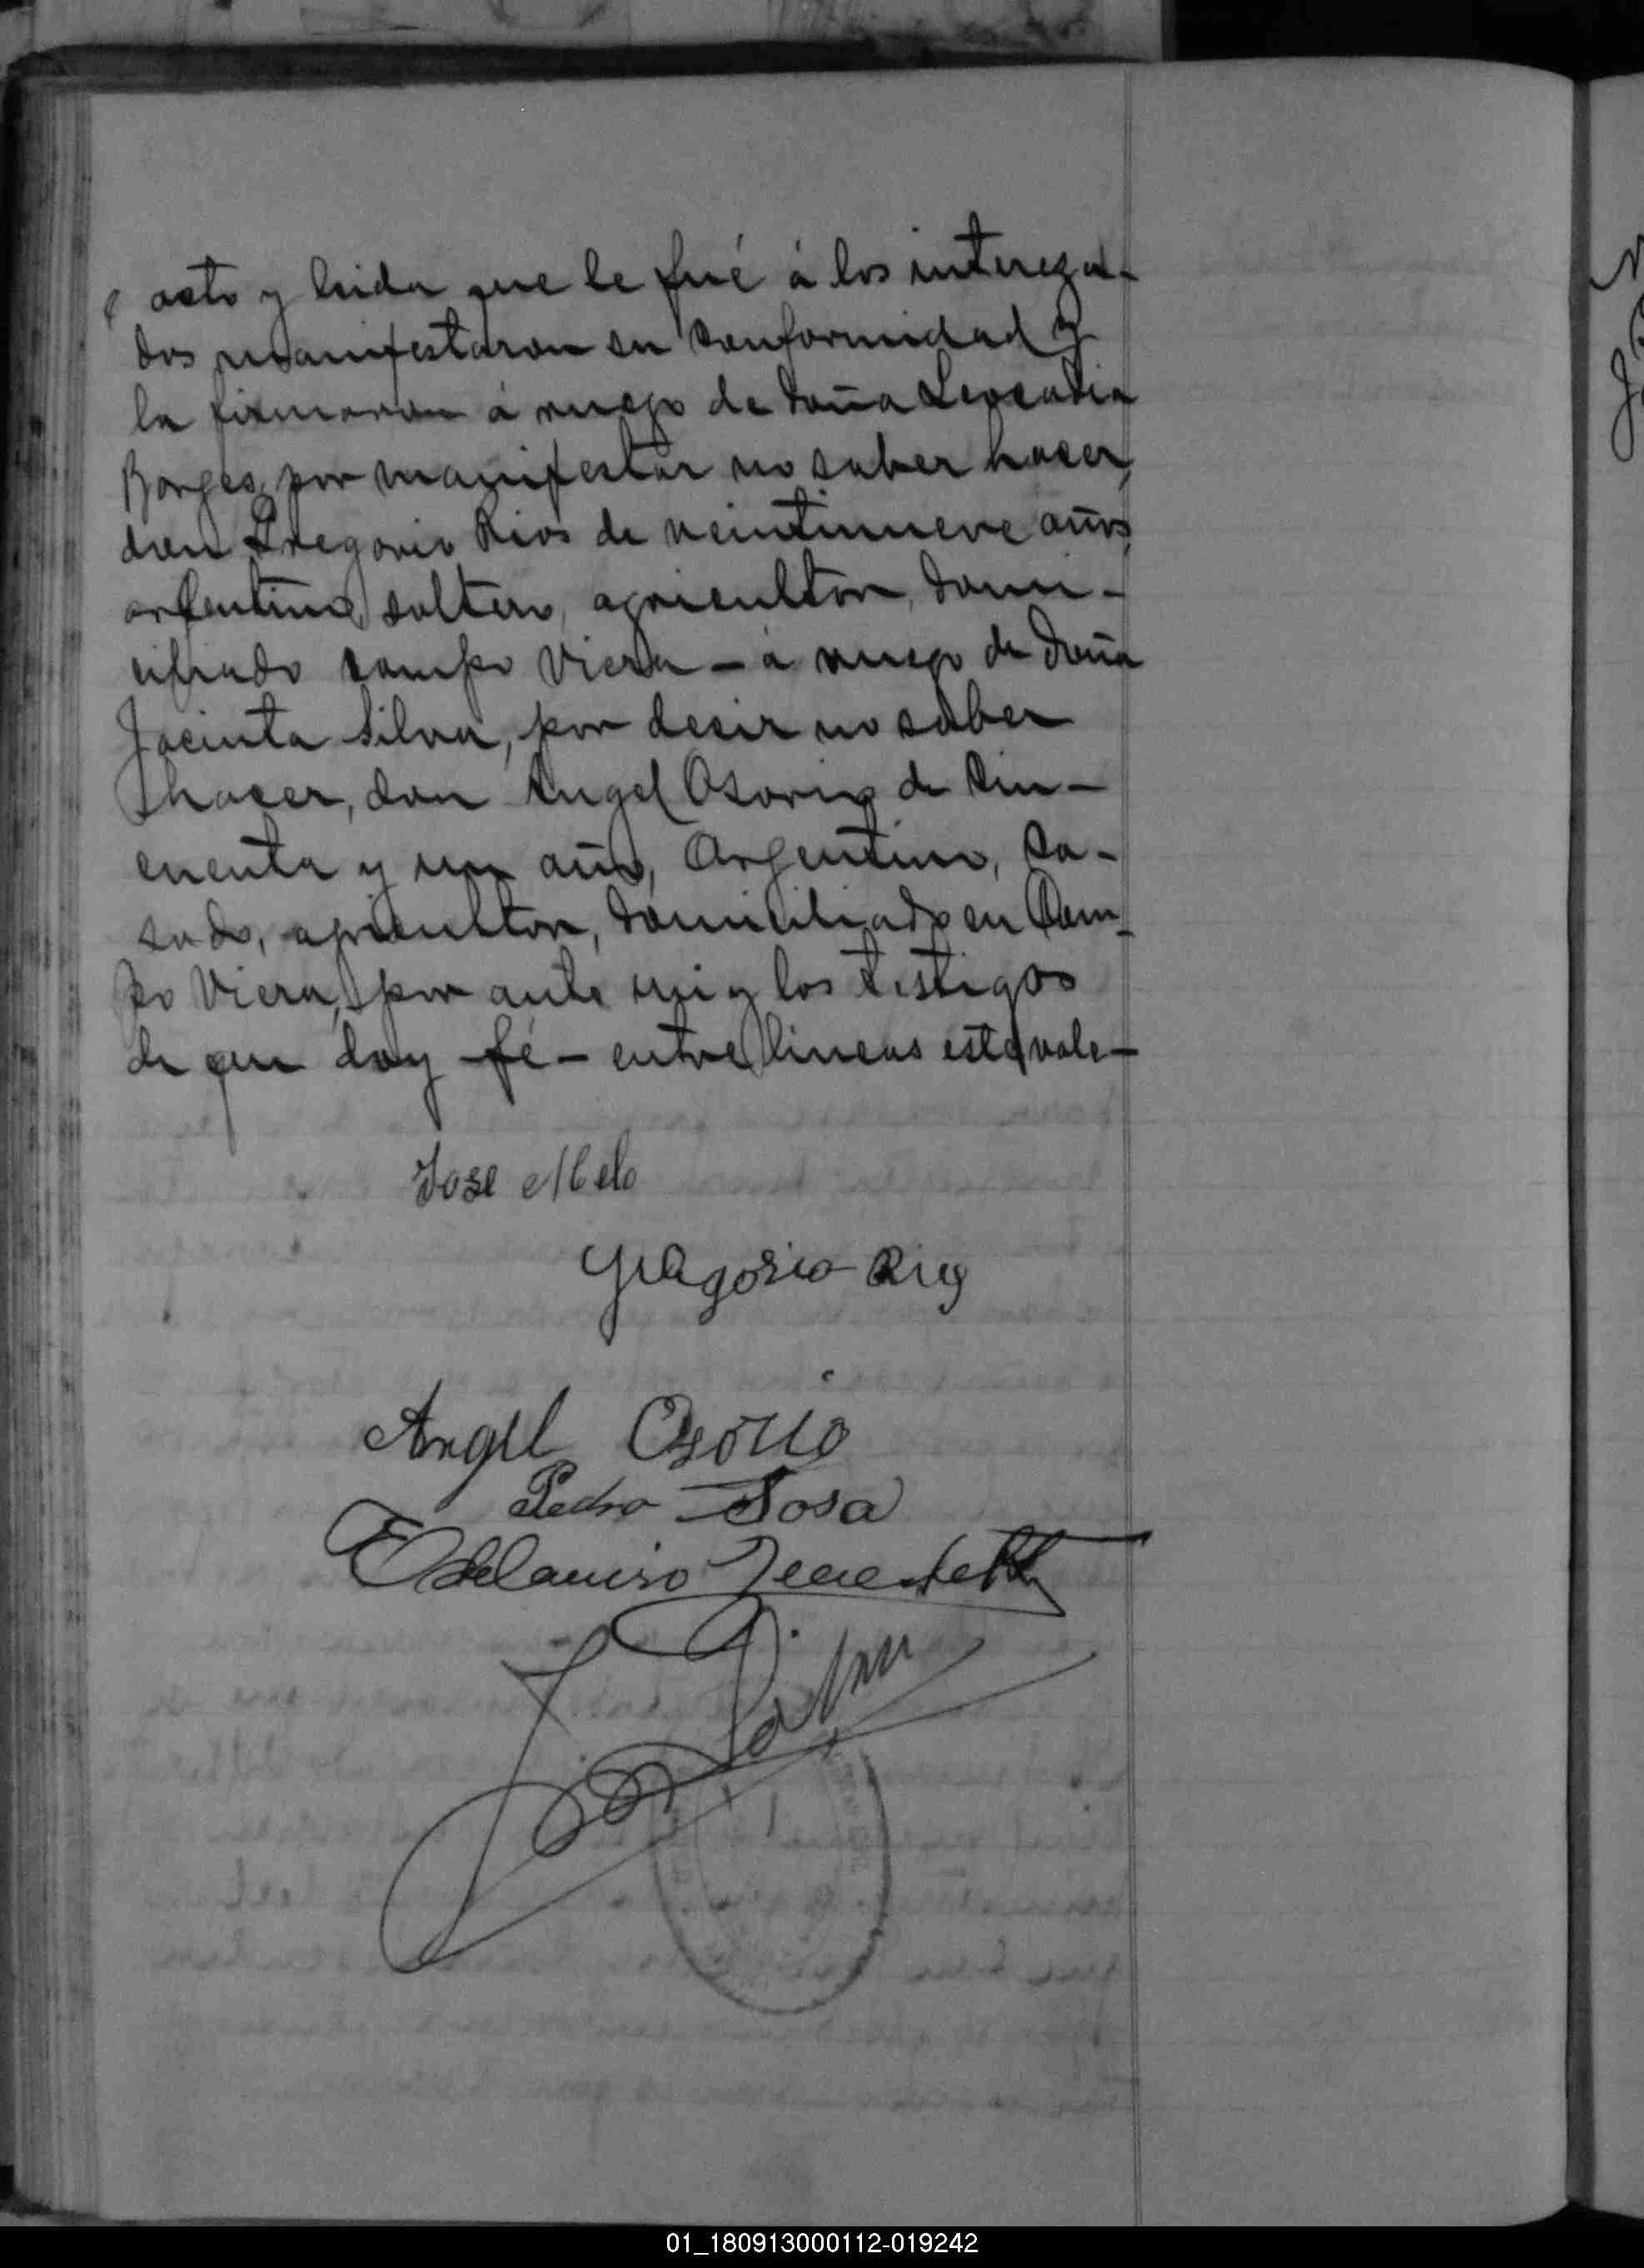 acto y leida que le fué á los intereza-
dos manifestaron su conformidad y
la firmaron á ruego de doña Leocadia
Borges, por manifestar no saber hacer,
don Gregorio Rios de veintinueve años,
argentino, soltero, agricultor, domi-
ciliado Campo Viera - á ruego de doña
Jacinta Silva, por desir no saber
hacer, don Angel Osorio de Cin-
cuenta y un año, Argentino, Ca-
sado, agricultor, domiciliado en Cam-
po Viera, por ante mi y los testigos
de que doy fé - entre lineas esta vale -
Jose Melo
Gregorio Rios
Angel Osorio
Pedro Sosa
01_180913000112-019242